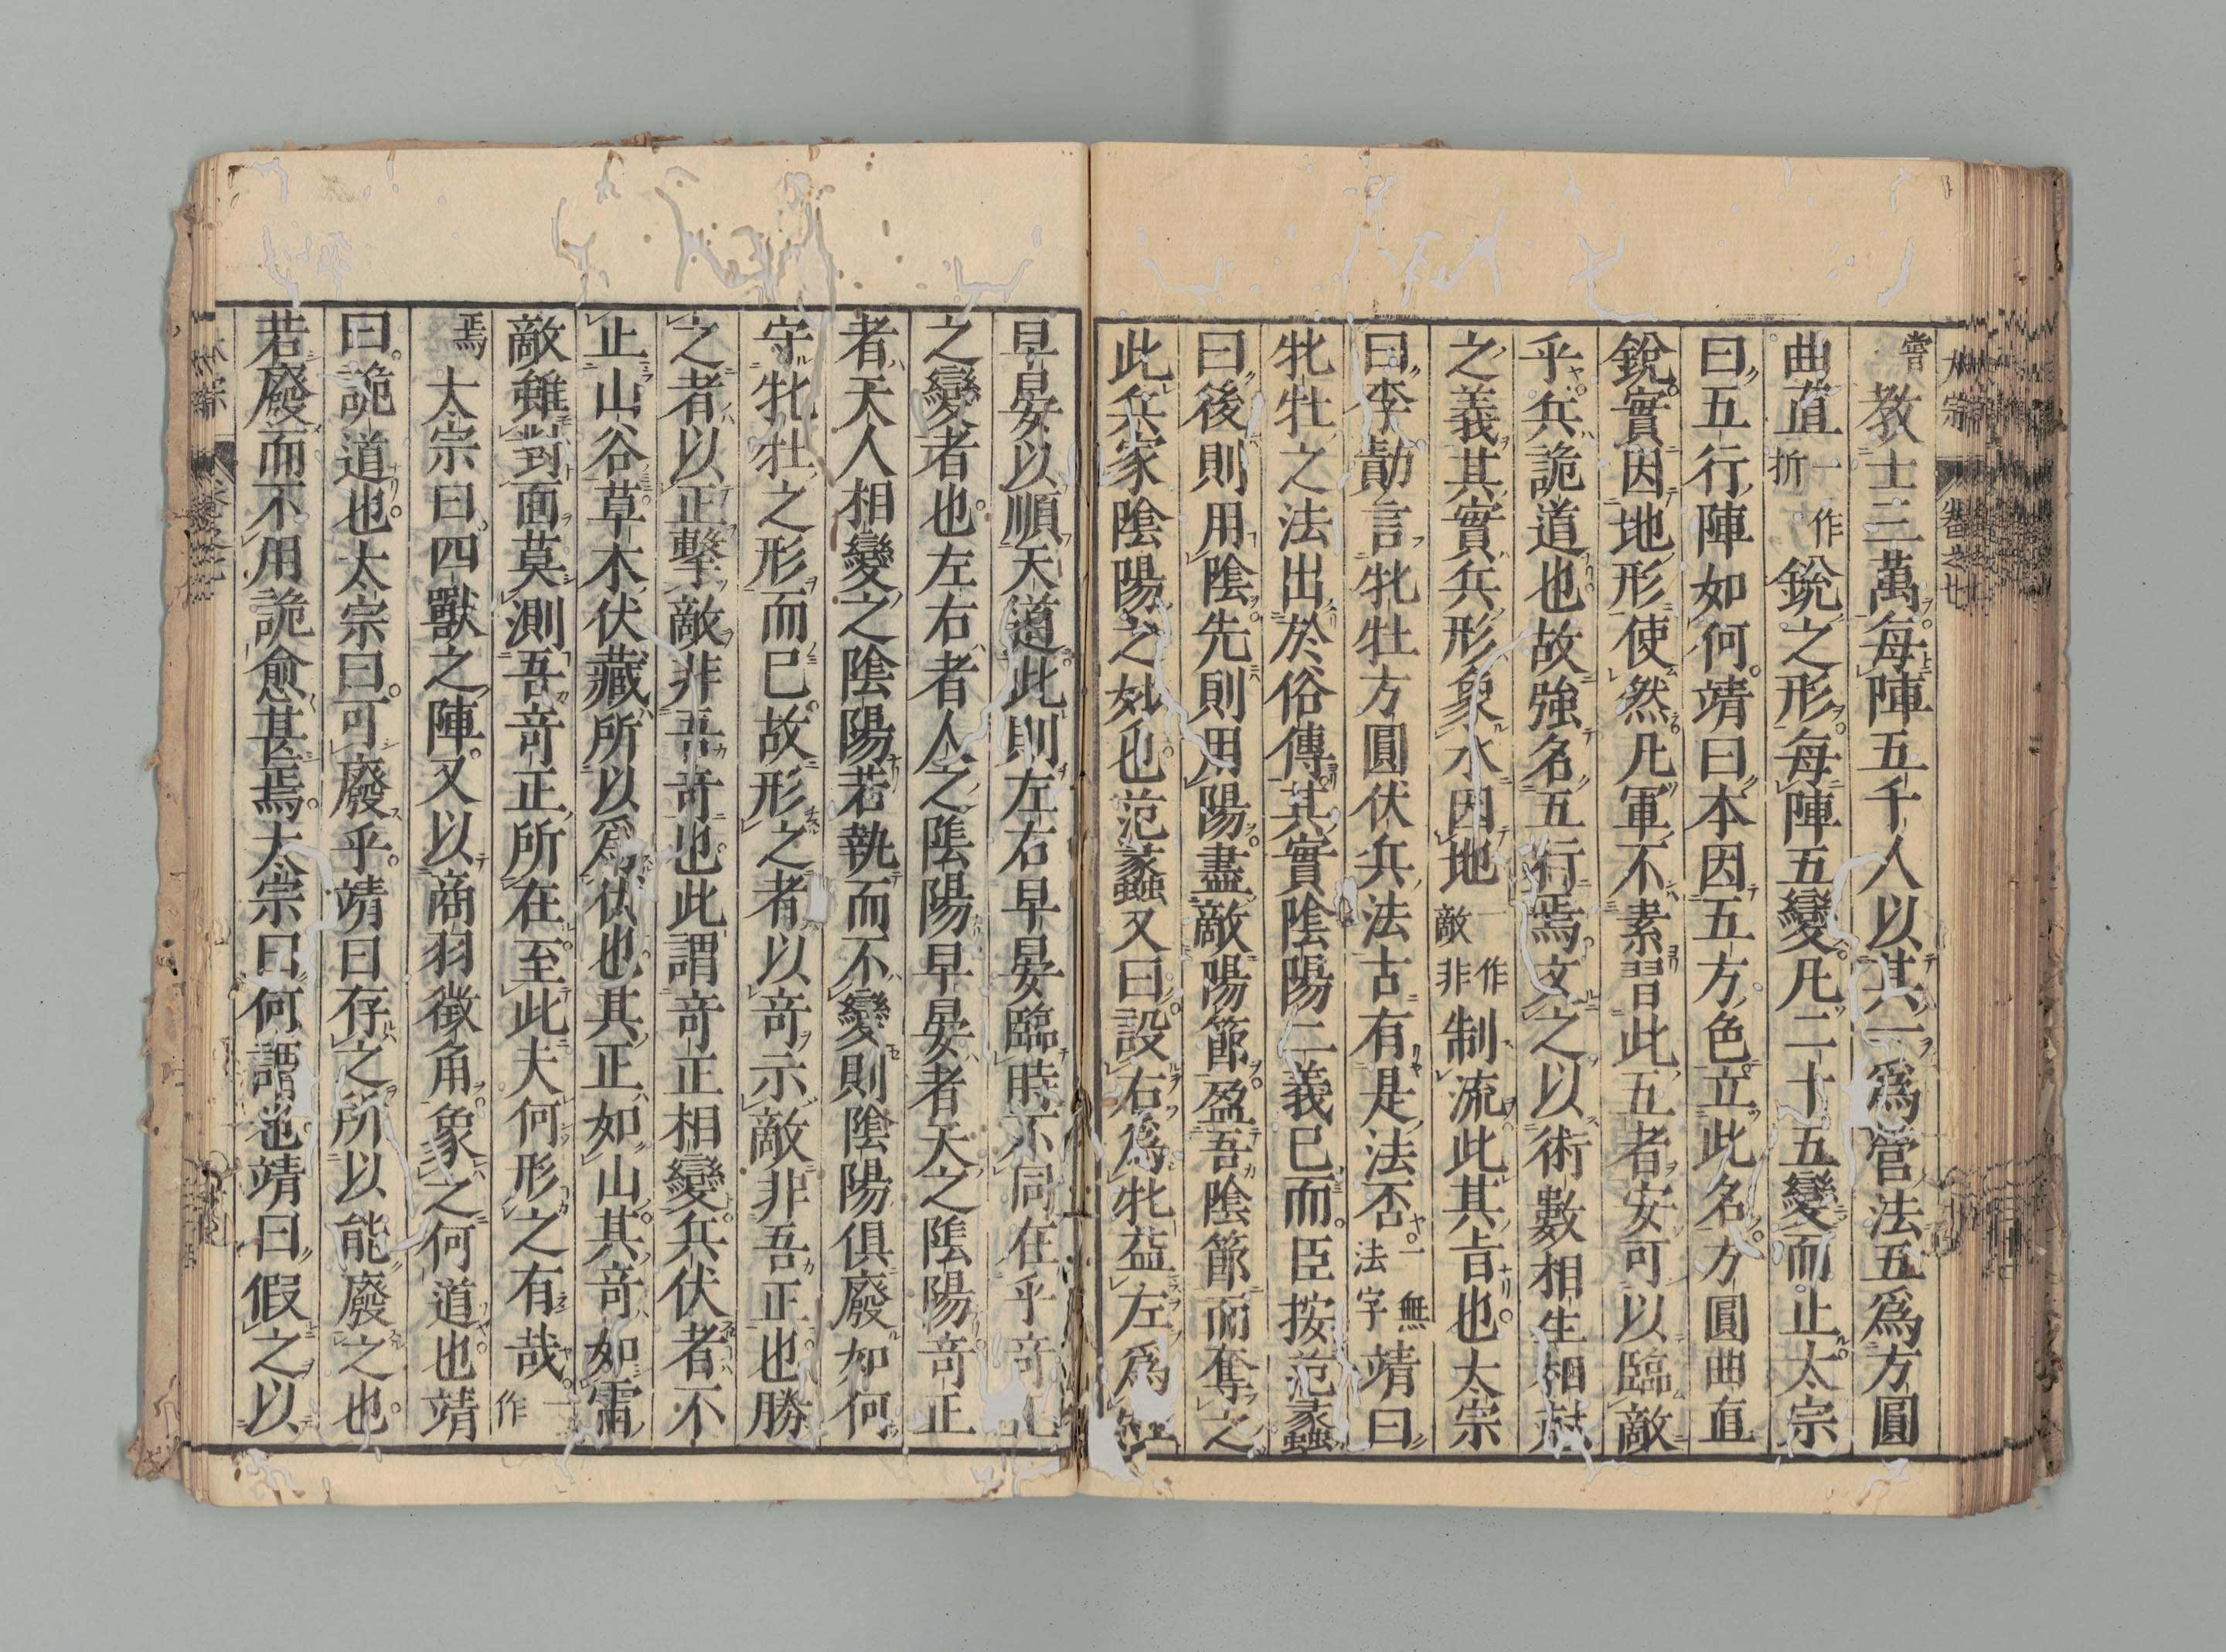 嘗教士三萬每陣五千人以其一爲營法五爲方圓
曲直一作折銳之形每陣五變凡二十五變而止太宗
曰五行陣如何靖曰本因五方色立此名方圓曲直
銳實因地形使然凡軍不素習此五者安可以臨敵
乎兵詭道也故強名五行焉文之以術數相生相尅
之義其實兵形象水因地一作敵非制流此其旨也太宗
曰李勣言牝牡方圓伏兵法古有是法否一無法字靖曰
牝牡之法出於俗傳其實陰陽二義已而臣按范蠡
曰後則用陰先則用陽盡敵陽節盈吾陰節而奪之
此兵家陰陽之妙也范蠡又曰設右爲牝益左爲牡
早晏以順天道此則左右早晏臨時不同在乎奇正
之變者也左右者人之陰陽早晏者天之陰陽奇正
者天人相變之陰陽若執而不變則陰陽俱廢如何
守牝牡之形而已故形之者以奇示敵非吾正也勝
之者以正擊敵非吾奇也此謂奇正相變兵伏者不
止山谷草木伏藏所以爲伏也其正如山其奇如雷
敵雖對面莫測吾奇正所在至此夫何形之有哉一作
焉太宗曰四獸之陣又以商羽徵角象之何道也靖
曰詭道也太宗曰可廢乎靖曰存之所以能廢之也
若廢而不用詭愈甚焉太宗曰何謂也靖曰假之以